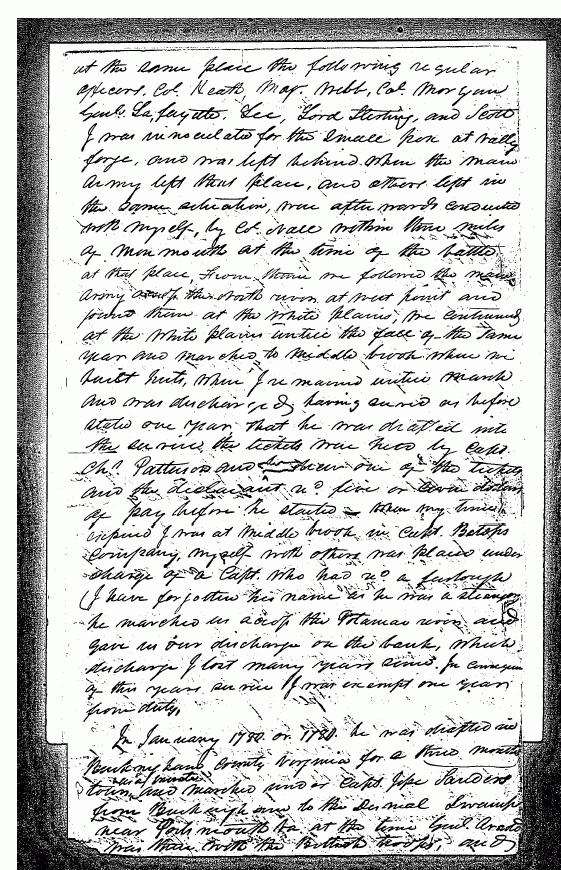 at the same place the following regular
officers, Col. Heath Maj. Webb, Col. Morgan
Genl. Lafayette, Lee, Lord Sterling, and Scott
I was innoculated for the Small pox at vally
forge, and was left behind when the main
army left that place, and others left in
the same situation, was afterwards conducted
with myself, by Col. within three miles
of Monmouth at the time of the battle
at that place, from there we followed the main
army across the North river at west point and
joined them at the White plains, we continued
at the White plains untill the fall of the same
year and marched to Middle brook where we
built huts, where I remained untill March
and was discharged having served as before
stated one year. That he was drafted into
the service the tickets was held by Capt.
Chs. Patterson and drawn one of the tickets
and the declarant recd. five or seven dollars
of pay before he started – When my time
expired I was at Middle brook in Capt.
company, myself with others was placed under
charge of a Capt. who had recd a furlough
(I have forgotten his name as he was a stranger
he marched us across the Potamac river and
gave us our discharge on the bank, which
discharge I lost many years since. In consequence
of this years service I was exempt one year
from duty.
In January 1780 or 1781. he was drafted in
County Virginia for a three months
tour, and marched under Capt. Sanders
from to the Dismal Swamp
near Portsmouth Va at the time Genl. Arnold
was there with the British troops, and